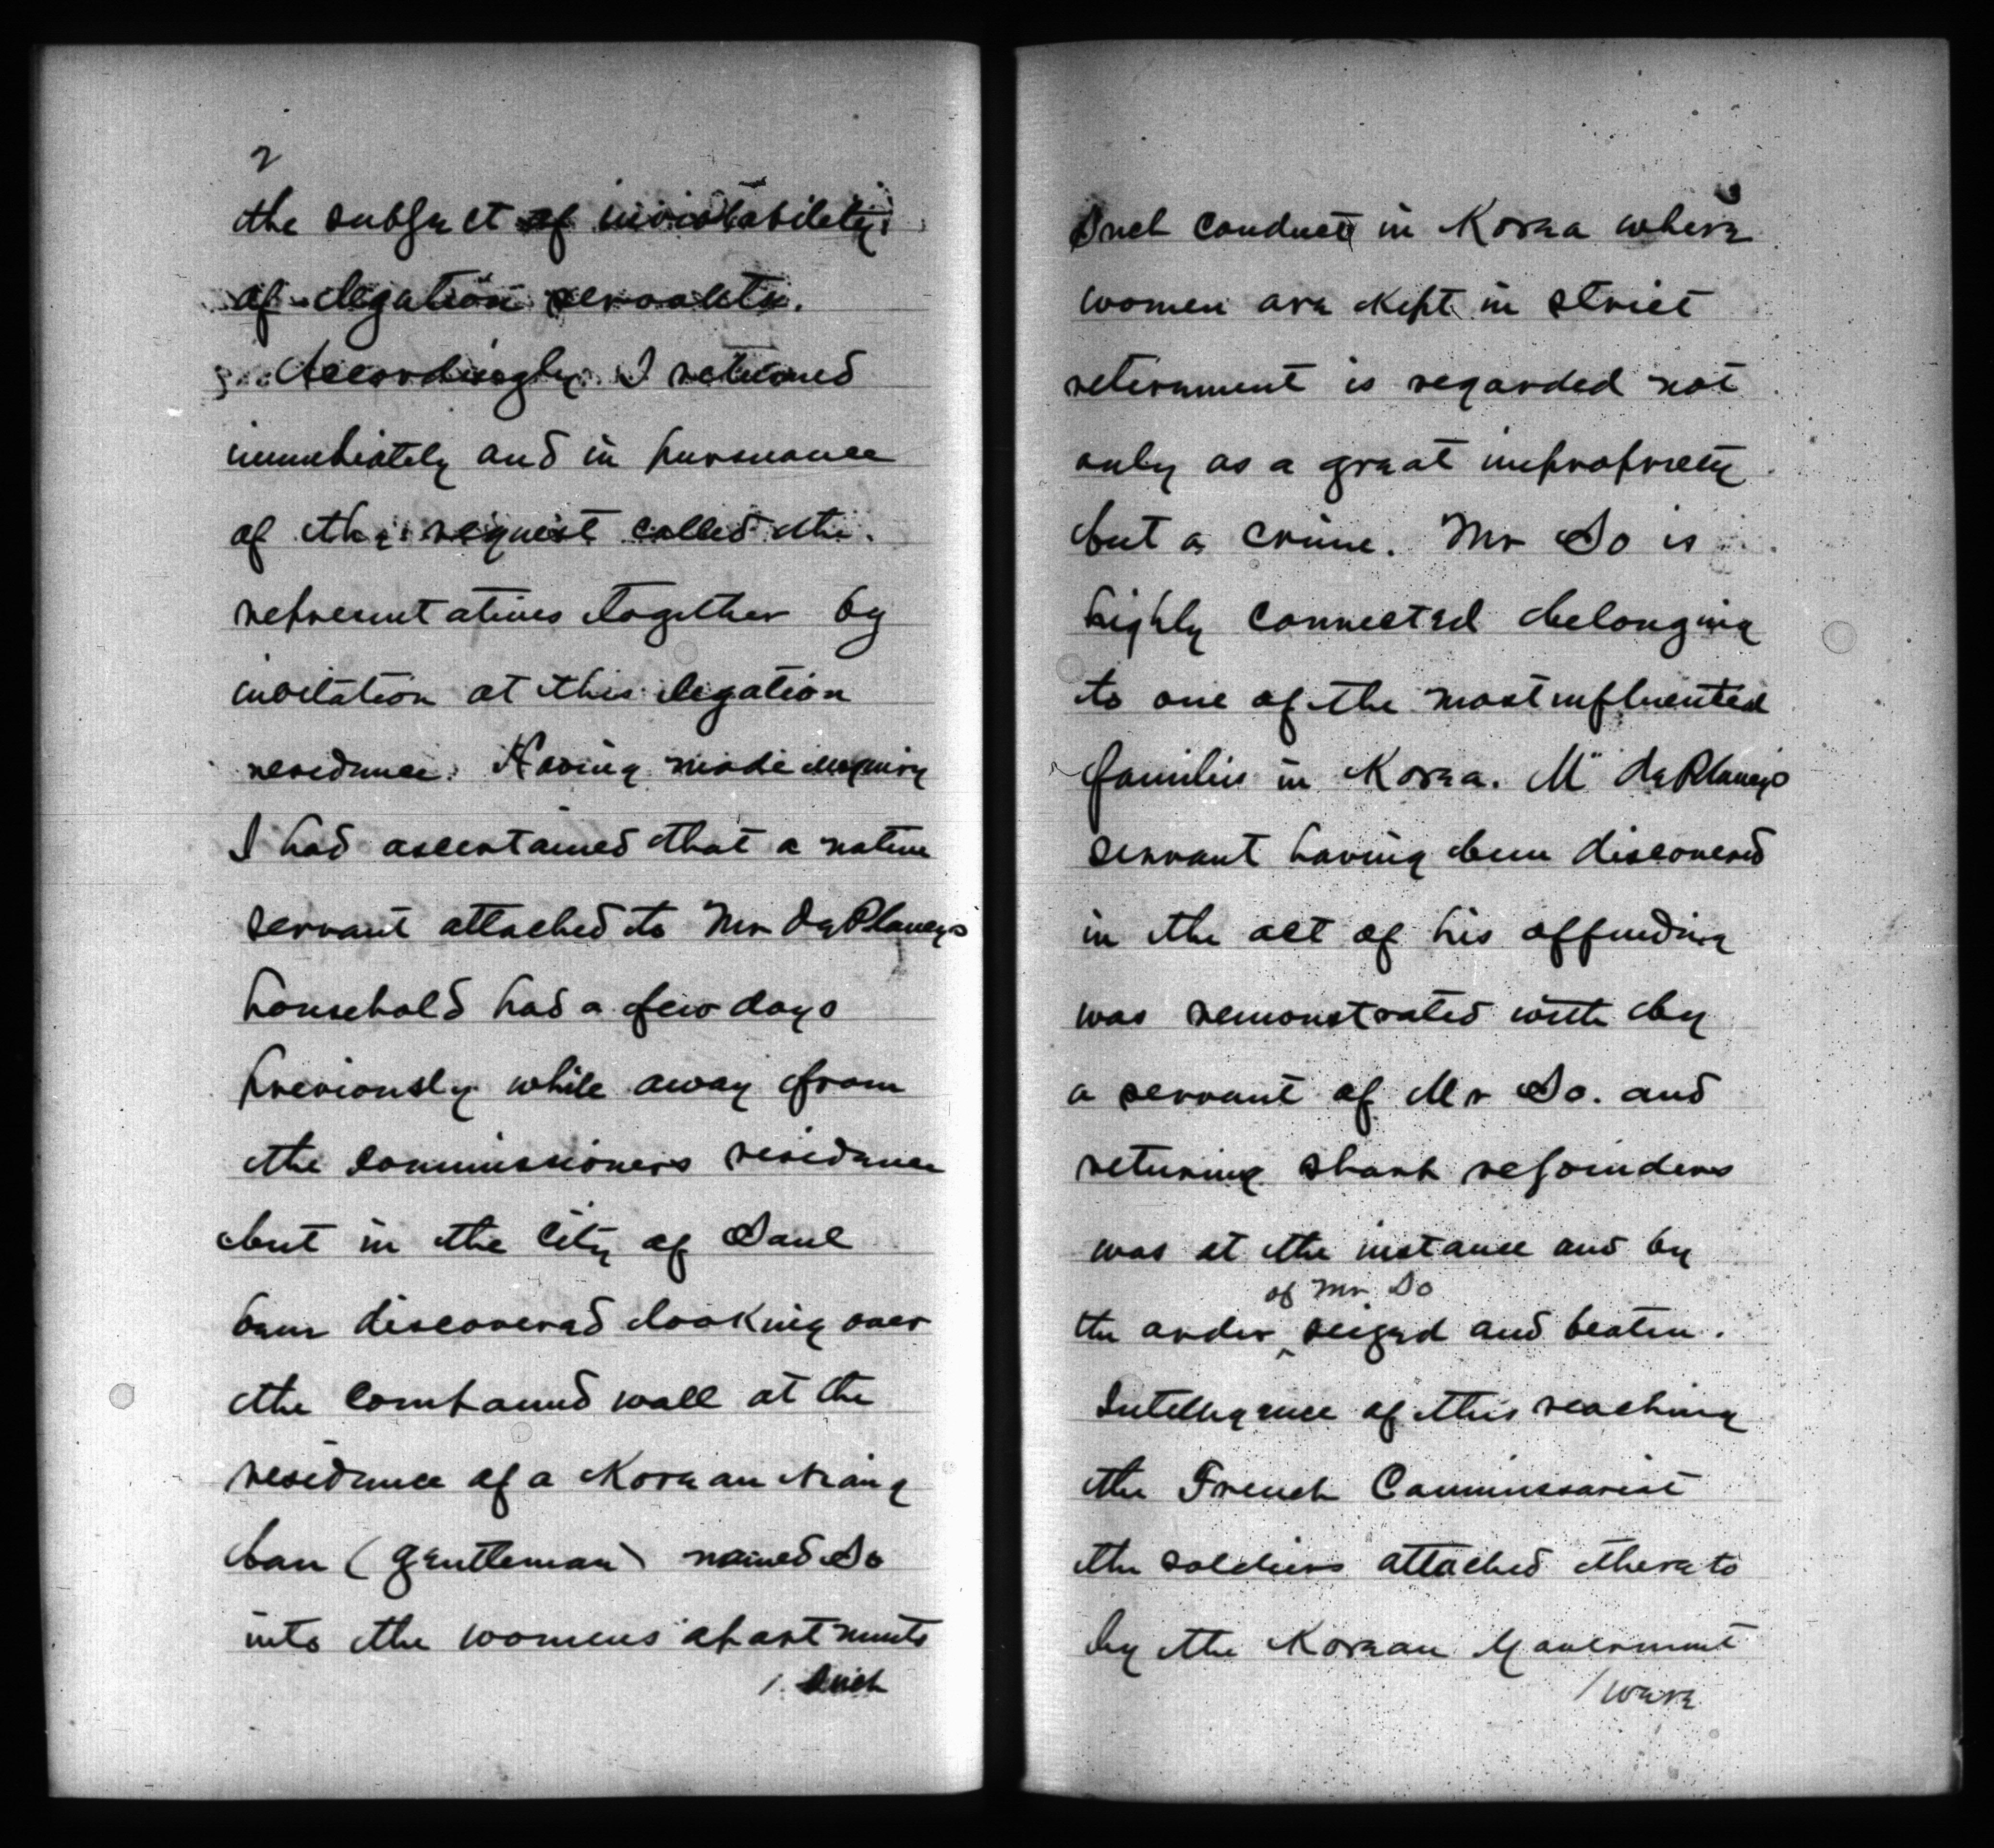 2
the subject of inviolability
of legation servants.
Accordingly I returned
immediately and in pursuance
of the request called the
representatives together by
invitation at this legation
residence. Having made inquiry
I had ascertained that a native
servant attached to Mr de Plancy's
household had a few days
previously while away from
the commissioners residence
but in the City of Saul
been discovered looking over
the compound wall at the
residence of a Korean Niang
ban (gentleman) named So
into the womens apartments
/. Such
3
Such conduct in Korea where
women are kept in strict
retirement is regarded not
only as a great impropriety
but a crime. Mr So is
highly connected belonging
to one of the most influential
families in Korea. Mr de Plancy's
servant having been discovered
in the act of his offending
was remonstrated with by
a servant of Mr So. and
returning sharp rejoinders
was at the instance and by
of Mr So
the order ‸ seized and beaten.
Intelligence of this reaching
the French Commissariat
the soldiers attached thereto
by the Korean Government
/ were